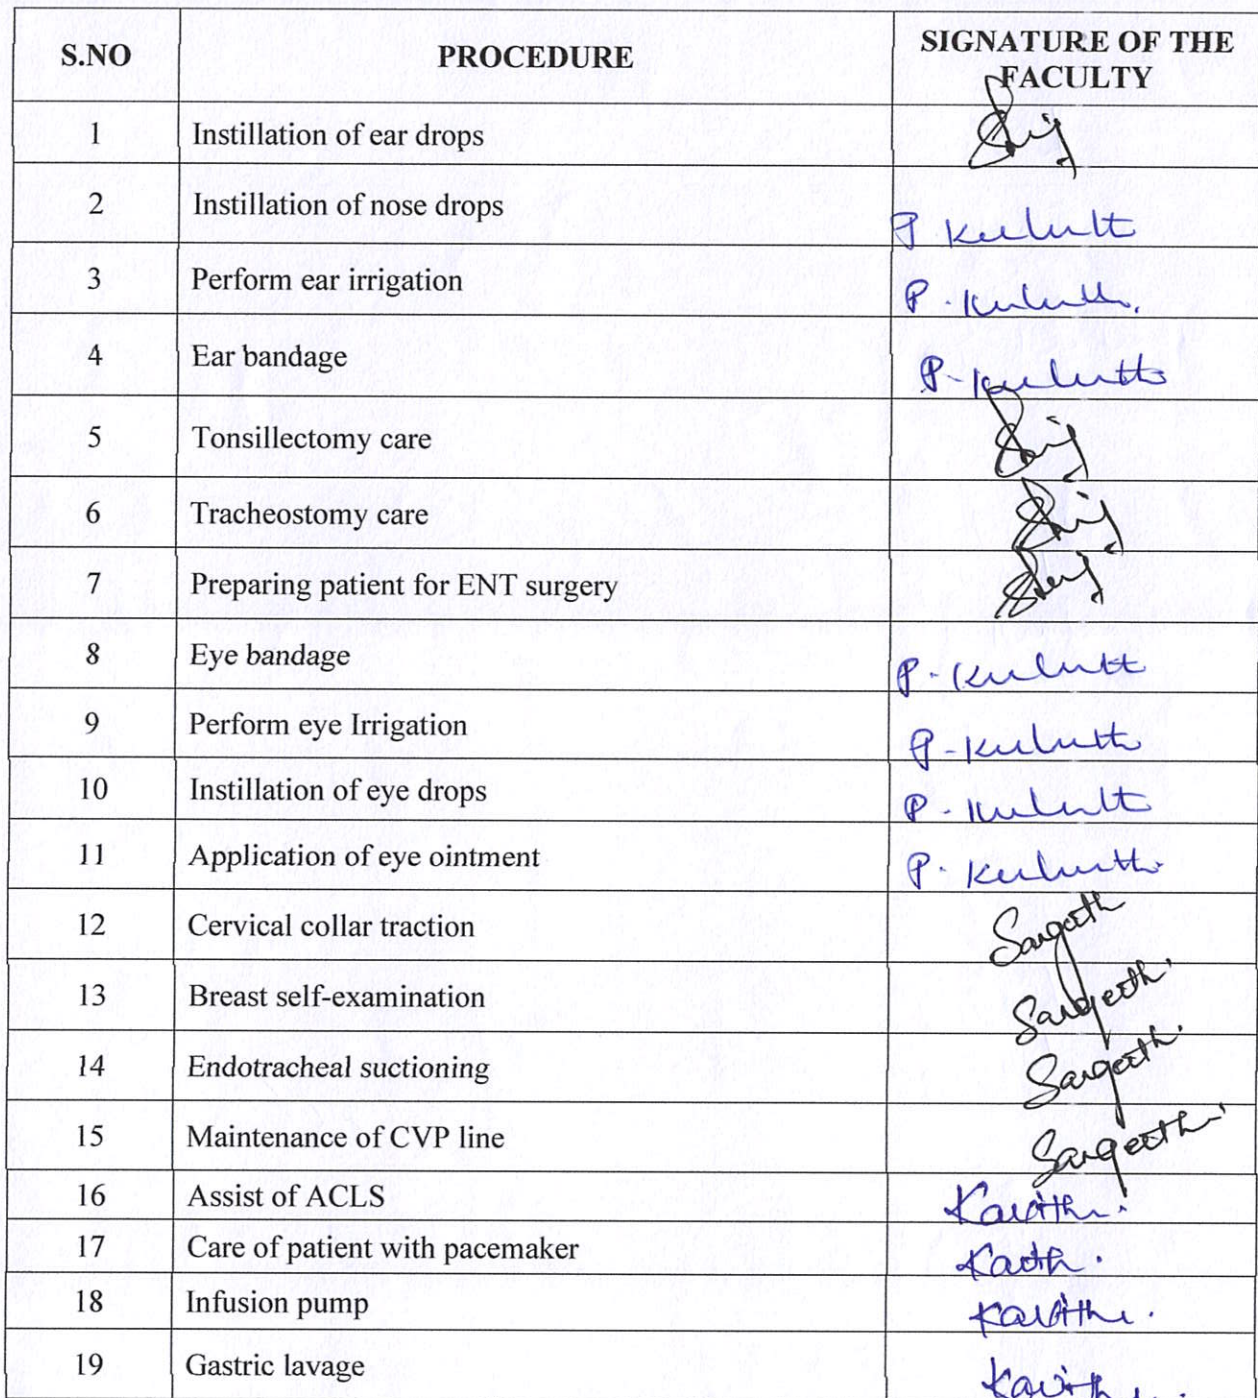 S.NO PROCEDURE SIGNATURE OF THE FACULTY
1 Instillation of ear drops
2 Instillation of nose drops P
3 Perform ear irrigation P.
4 Ear bandage P.
5 Tonsillectomy care
6 Tracheostomy care
7 Preparing patient for ENT surgery
8 Eye bandage P.
9 Perform eye Irrigation P.
10 Instillation of eye drops P.
11 Application of eye ointment P.
12 Cervical collar traction Sangeeth
13 Breast self-examination Sangeeth
14 Endotracheal suctioning Sangeeth
15 Maintenance of CVP line Sangeeth
16 Assist of ACLS Kavitha
17 Care of patient with pacemaker
18 Infusion pump Kavitha
19 Gastric lavage Kavitha